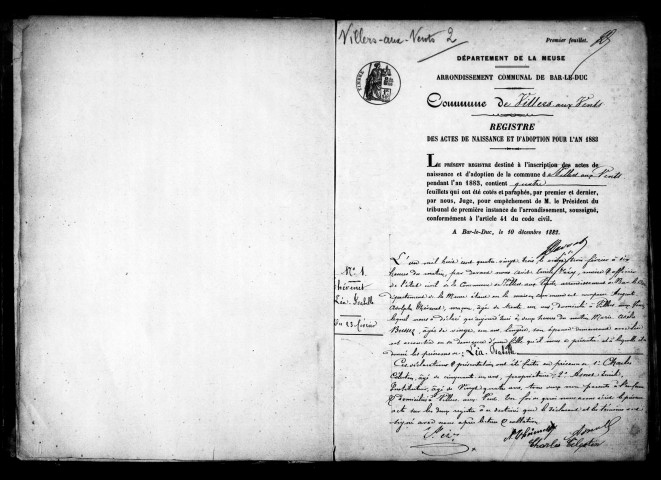 Villers-aux-Vents 2
Premier feuillet.
DÉPARTEMENT DE LA MEUSE
ARRONDISSEMENT COMMUNAL DE BAR-LE-DUC
Commune de Villers aux Vents
REGISTRE
DES ACTES DE NAISSANCE ET D'ADOPTION POUR L'AN 1883
LE PRÉSENT REGISTRE destiné à l'inscription des actes de
naissance et d'adoption de la commune d Villers aux Vents
pendant l'an 1883, contient quatre
feuillets qui ont été cotés et paraphés, par premier et dernier,
par nous, Juge, pour empêchement de M. le Président du
tribunal de première instance de l'arrondissement, soussigné,
conformément à l'article 41 du code civil.
A Bar-le-Duc, le 10 décembre 1882.
N° 1.
Thévenet
Léa-Isabelle
L'an mil huit cent quatre vingt trois, le février à dix
heures du matin, par devant nous maire & officier
de l'état civil de la Commune de Villers aux Vents, arrondissement de Bar le Duc
département de la Meuse, étant en la maison commune est comparu
Adolphe Thévenet, âgé de trente un ans, domicilié à Villers aux Vents
lequel nous a déclaré qu'aujourd'hui à deux heures du matin Marie
âgée de vingt un ans son épouse
est accouchée en sa demeure d'une fille qu'il nous a présentée et à laquelle il a
donné les prénoms de: Léa Isabelle
Ces déclaration & présentation ont été faites en présence de 1° Charles
Célestin, âgé de cinquante un ans, propriétaire, 2°
Instituteur, âgé de vingt quatre ans, tous deux non parents à l'enfant
& domiciliés à Villers aux Vents. En foi de quoi nous avons dressé le présent
acte sur les deux registres à ce destinés que le déclarant et les témoins ont
signé avec nous après lecture & collation
Charles Célestin